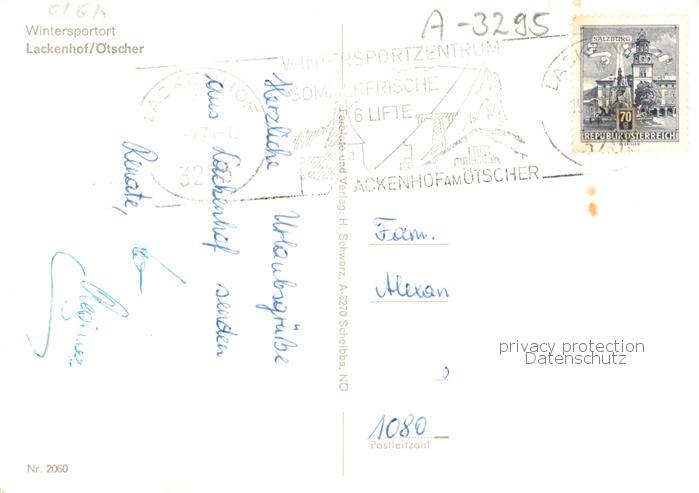 A-3295
Wintersportort
Lackenhof/Ötscher
SALZBURG
70
REPUBLIK ÖSTERREICH
WINTERSPORTZENTRUM
SOMMERFRISCHE
6 LIFTE
LACKENHOF AM ÖTSCHER
LACKENHOF
Herzliche Urlaubsgrüße
aus Lackenhof senden
Renate,
Farbfoto und Verlag: H. Schwarz, A-3270 Scheibbs, NÖ
Fam.
Alexan
privacy protection
Datenschutz
1080
Postleitzahl
Nr. 2060